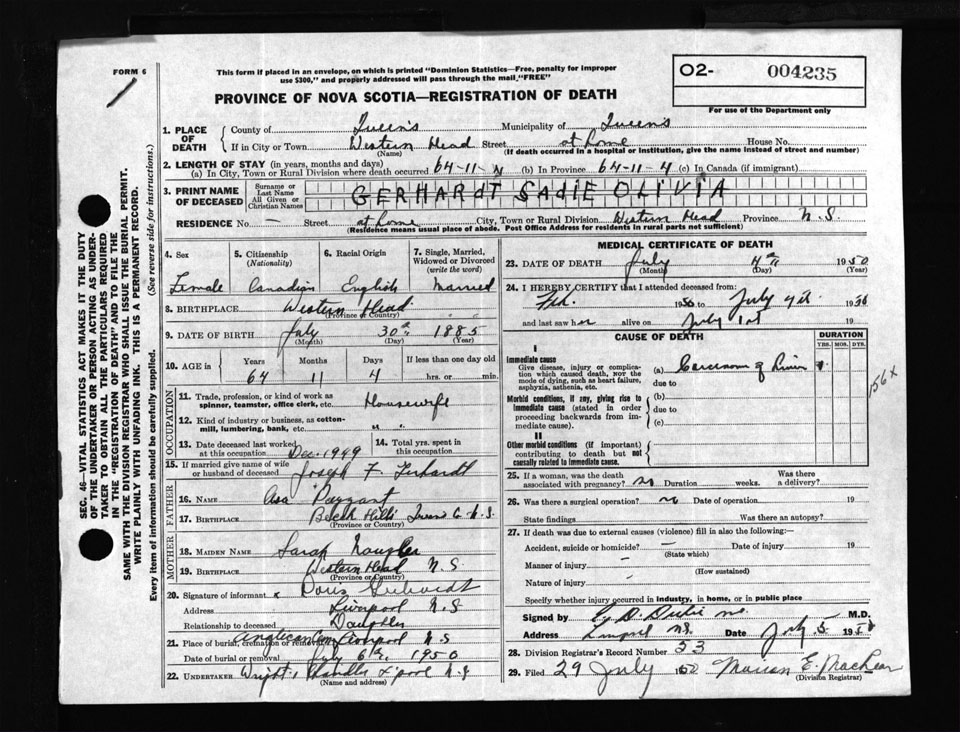 FORM 6
This form if placed in an envelope, on which is printed "Dominion Statistics—Free, penalty for improper
use $300," and properly addressed will pass through the mail, "FREE"
PROVINCE OF NOVA SCOTIA—REGISTRATION OF DEATH
O2- 004235
For use of the Department only
SEC. 46—VITAL STATISTICS ACT MAKES IT THE DUTY
OF THE UNDERTAKER OR PERSON ACTING AS UNDER-
TAKER TO OBTAIN ALL THE PARTICULARS REQUIRED
IN THE "REGISTRATION OF DEATH" AND TO FILE THE
SAME WITH THE DIVISION REGISTRAR WHO SHALL ISSUE THE BURIAL PERMIT.
WRITE PLAINLY WITH UNFADING INK. THIS IS A PERMANENT RECORD.
Every item of information should be carefully supplied. (See reverse side for instructions.)
1. PLACE OF DEATH County of Queen's Municipality of Queen's
If in City or Town Western Head Street at home House No.
(Name) (If death occurred in a hospital or institution, give the name instead of street and number)
2. LENGTH OF STAY (in years, months and days)
(a) In City, Town or Rural Division where death occurred 64-11-4 (b) In Province 64-11-4 (c) In Canada (if immigrant)
3. PRINT NAME OF DECEASED Surname or Last Name All Given or Christian Names GERHARDT SADIE OLIVIA
RESIDENCE No. — Street at home City, Town or Rural Division Western Head Province N.S.
(Residence means usual place of abode. Post Office Address for residents in rural parts not sufficient)
4. Sex 5. Citizenship (Nationality) 6. Racial Origin 7. Single, Married, Widowed or Divorced (write the word)
Female Canadian English Married
8. BIRTHPLACE Western Head
(Province or Country)
9. DATE OF BIRTH July 30th 1885
(Month) (Day) (Year)
10. AGE in Years Months Days If less than one day old
64 11 4 hrs. or min.
OCCUPATION
11. Trade, profession, or kind of work as spinner, teamster, office clerk, etc. Housewife
12. Kind of industry or business, as cotton-mill, lumbering, bank, etc. " "
13. Date deceased last worked at this occupation Dec. 1949 14. Total yrs. spent in this occupation
15. If married give name of wife or husband of deceased Joseph F. Gerhardt
FATHER
16. NAME Asa
17. BIRTHPLACE N.S.
(Province or Country)
MOTHER
18. MAIDEN NAME Sarah
19. BIRTHPLACE Western Head N.S.
(Province or Country)
20. Signature of informant x Doris Gerhardt
Address Liverpool N.S
Relationship to deceased Daughter
21. Place of burial, cremation or removal Anglican Cem Liverpool N.S
Date of burial or removal July 6th 1950
22. UNDERTAKER Wright L'pool N.S
(Name and address)
MEDICAL CERTIFICATE OF DEATH
23. DATE OF DEATH July 4th 1950
(Month) (Day) (Year)
24. I HEREBY CERTIFY that I attended deceased from:
Feb. 1950 to July 1950
and last saw her alive on July 1st 19
CAUSE OF DEATH DURATION
YRS. MOS. DYS.
I
Immediate cause
Give disease, injury or complication which caused death, NOT the mode of dying, such as heart failure, asphyxia, asthenia, etc.
(a) Carcinoma of Liver
due to
156x
Morbid conditions, if any, giving rise to immediate cause (stated in order proceeding backwards from immediate cause)
(b)
due to
(c)
II
Other morbid conditions (if important) contributing to death but not causally related to immediate cause.
25. If a woman, was the death associated with pregnancy? no Duration weeks. Was there a delivery?
26. Was there a surgical operation? no Date of operation 19
State findings Was there an autopsy?
27. If death was due to external causes (violence) fill in also the following:—
Accident, suicide or homicide? — Date of injury 19
(State which)
Manner of injury —
(How sustained)
Nature of injury —
Specify whether injury occurred in industry, in home, or in public place
Signed by M.D.
Address N.S. Date July 5 195
28. Division Registrar's Record Number 33
29. Filed 29 July 1950 Marion E. MacLean
(Division Registrar)